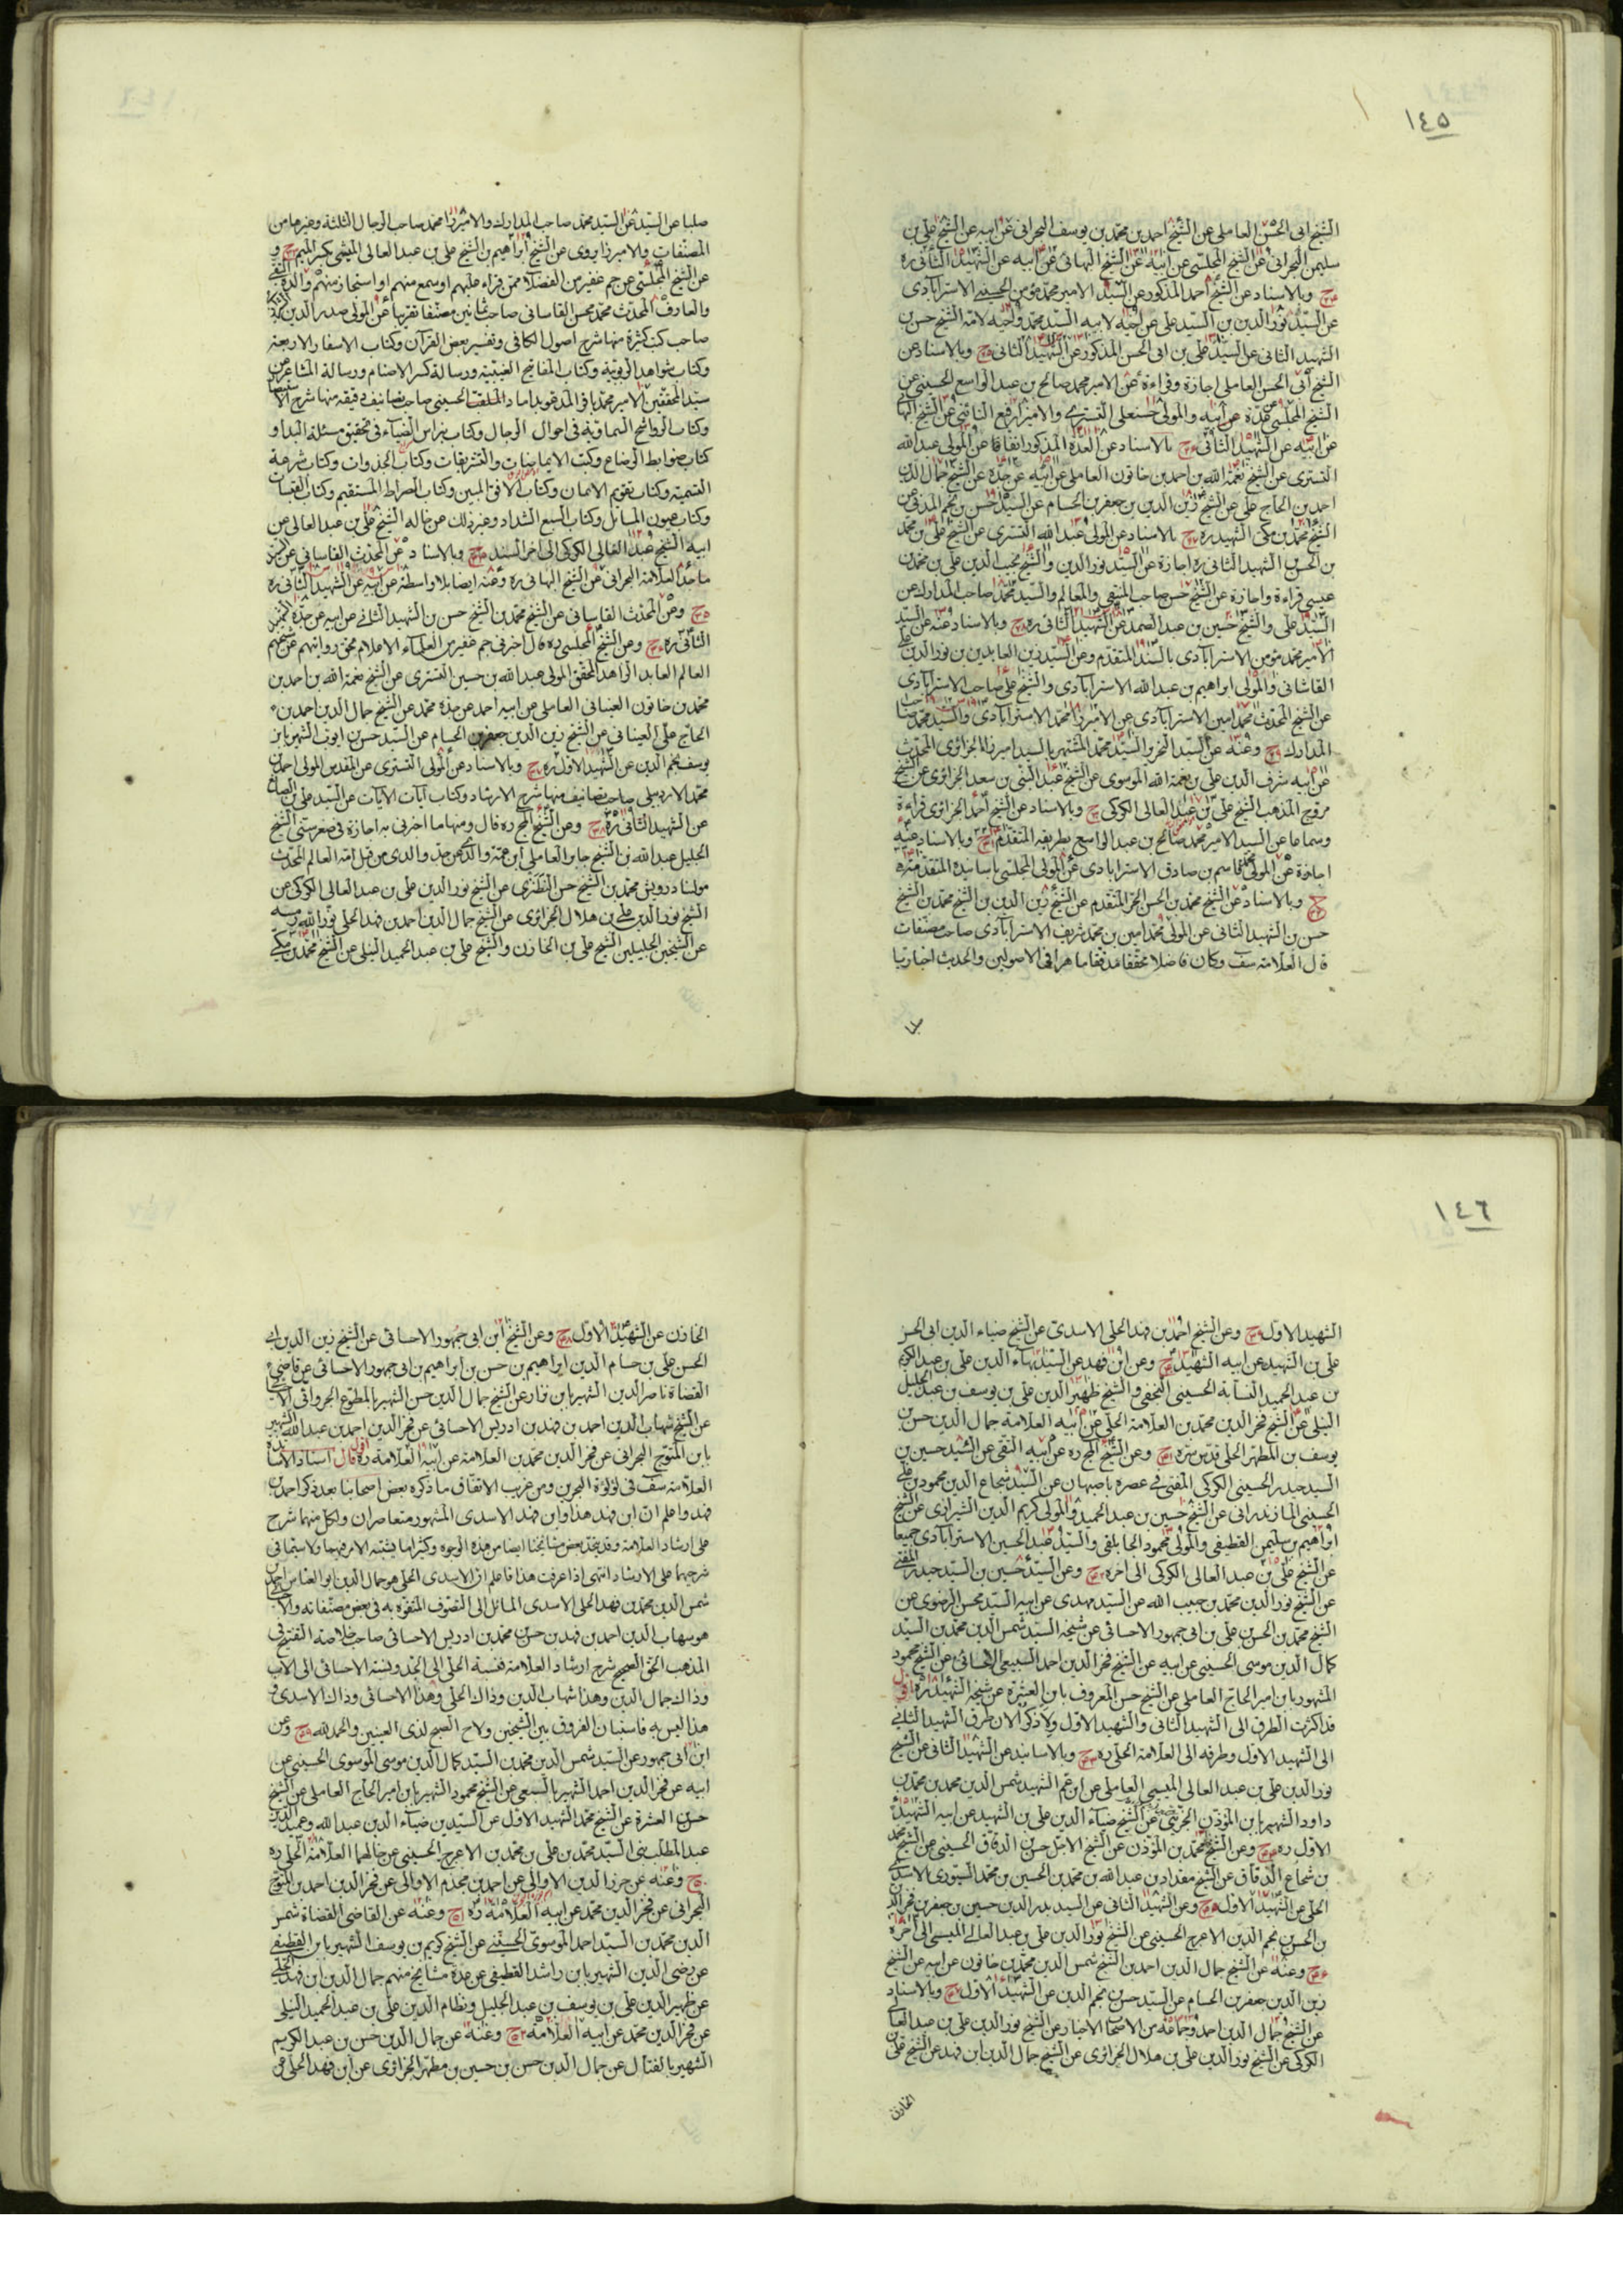 ١٤٥
الشيخ ابى الحسن العاملى عن الشيخ احمد بن محمد بن يوسف البحرانى عن ابيه عن الشيخ على بن
سليمن البحرانى عن الشيخ المجلسى عن ابيه عن الشيخ البهائى عن ابيه عن الشهيد الثانى ره
ح وبالاسناد عن الشيخ احمد المذكور عن السيد الامير محمد مؤمن الحسينى الاسترآبادى
عن السيد نور الدين بن السيد على عن اخيه لابيه السيد محمد واخيه لامه الشيخ حسن بن
الشهيد الثانى عن السيد على بن ابى الحسن المذكور عن الشهيد الثانى ح وبالاسناد عن
الشيخ ابى الحسن العاملى اجازة وقراءة عن الامير محمد صالح بن عبد الواسع الحسينى عن
الشيخ المجلسى عن عدة عن ابيه والمولى حسنعلى التسترى والاميرزا رفيع النائنى عن الشيخ البها
عن ابيه عن الشهيد الثانى ح بالاسناد عن العدة المذكور اتفاقا عن المولى عبد الله
التسترى عن الشيخ نعمة الله بن احمد بن خاتون العاملى عن ابيه عن جده عن الشيخ جمال الدين
احمد بن الحاج على عن الشيخ زين الدين بن جعفر بن الحسام عن السيد حسن بن نجم المدنى عن
الشيخ محمد بن مكى الشهيد ره ح بالاسناد عن المولى عبد الله التسترى عن الشيخ على بن محمد
بن الحسن الشهيد الثانى ره اجازة عن السيد نور الدين والشيخ نجيب الدين على بن محمد بن
عيسى قراءة واجازة عن الشيخ حسن صاحب المنتقى والمعالم والسيد محمد صاحب المدارك عن
السيد على والشيخ حسين بن عبد الصمد عن الشهيد الثانى ره ح وبالاسناد عنه عن السيد
الامير محمد مؤمن الاسترآبادى بالسند المتقدم وعن السيد زين العابدين بن نور الدين
القاشانى والمولى ابراهيم بن عبد الله الاسترآبادى والشيخ على صاحب الاسترآبادى
عن الشيخ المحدث محمد امين الاسترآبادى عن الاميرزا محمد الاسترآبادى والسيد محمد صاحب
المدارك ح وعنه عن السيد النحرير السيد محمد المشتهر بالسيد اميرزا الجزائرى المحدث
عن ابيه شرف الدين على بن نعمة الله الموسوى عن الشيخ عبد النبى بن سعد الجزائرى عن الشيخ
مروج المذهب الشيخ على بن عبد العالى الكركى ح وبالاسناد عن الشيخ احمد الجزائرى قراءة
وسماعا عن السيد الامير محمد صالح بن عبد الواسع بطريقه المتقدم ح وبالاسناد عنه
اجازة عن المولى محمد قاسم بن صادق الاسترابادى عن المولى المجلسى باسانيده المتقدمة
ح وبالاسناد عن الشيخ محمد بن الحسن الحر المتقدم عن الشيخ زين الدين بن الشيخ محمد بن الشيخ
حسن بن الشهيد الثانى عن المولى محمد امين بن محمد شريف الاسترآبادى صاحب مصنفات
قال العلامة سف وكان فاضلا محققا مدققا ماهرا فى الاصولين والحديث اخباريا
صلبا عن السيد عن السيد محمد صاحب المدارك والاميرزا محمد صاحب الرجال الثلثة وغيرها من
المصنفات والاميرزا يروى عن الشيخ ابراهيم بن الشيخ على بن عبد العالى الميسى بكسر الميم ح و
عن الشيخ المجلسى عن جم غفير من الفضلاء ممن قراء عليهم او سمع منهم او استجاز منهم والده التقى
والعارف المحدث محمد محسن القاسانى صاحب ثمانين مصنفا تقريبا عن المولى صدر الدين
صاحب كتب كثيرة منها شرح اصول الكافى وتفسير بعض القرآن وكتاب الاسفار الاربعة
وكتاب شواهد الربوبية وكتاب المفاتيح الغيبية ورسالة كسر الاصنام ورسالة المشاعر عن
سيد المحققين الامير محمد باقر المدعو بداماد الملقب الحسينى صاحب تصانيف دقيقه منها شرح الاستبصار
وكتاب الرواشح السماوية فى احوال الرجال وكتاب نبراس الضياء فى تحقيق مسئلة البداو
كتاب ضوابط الرضاع وكتب الايماضات والتشريقات وكتاب الجذوات وكتاب شرعة
التسمية وكتاب تقويم الايمان وكتاب الافق المبين وكتاب الصراط المستقيم وكتاب القبسات
وكتاب عيون المسائل وكتاب السبع الشداد وغير ذلك عن خاله الشيخ على بن عبد العالى عن
ابيه الشيخ عبد العالى الكركى الى اخر السند ح وبالاسناد عن المحدث القاسانى عن السيد
ماجد العلامة البحرانى عن الشيخ البهائى ره وعنه ايضا بلا واسطة عن ابيه عن الشهيد الثانى ره
ح وعن المحدث القاسانى عن الشيخ محمد بن الشيخ حسن بن الشهيد الثانى عن ابيه عن جده الشهيد
الثانى ره ح وعن الشيخ المجلسى ره قال اخبرنى جم غفير من العلماء الاعلام بحق روايتهم عن شيخهم
العالم العابد الزاهد المحقق المولى عبد الله بن حسين التسترى عن الشيخ نعمة الله بن احمد بن
محمد بن خاتون العيناثى العاملى عن ابيه احمد عن جده محمد عن الشيخ جمال الدين احمد بن
الحاج على العيناثى عن الشيخ زين الدين جعفر بن الحسام عن السيد حسن بن ايوب الشهير بابن
يوسف نجم الدين عن الشهيد الاول ره ح وبالاسناد عن المولى التسترى عن المقدس المولى احمد بن
محمد الاردبيلى صاحب تصانيف منها شرح الارشاد وكتاب آيات الايات عن السيد على بن الصائغ
عن الشهيد الثانى ره ح وعن الشيخ المج ره قال ومنها ما اخبرنى به اجازة فى صغر سنى الشيخ
الجليل عبد الله بن الشيخ جابر العاملى ابن عمة والدى عن جد والدى من قبل امه العالم المحدث
مولينا درويش محمد بن الشيخ حسن النطنزى عن الشيخ نور الدين على بن عبد العالى الكركى عن
الشيخ نور الدين على بن هلال الجزائرى عن الشيخ جمال الدين احمد بن فهد الحلى نور الله رمسه
عن الشيخين الجليلين الشيخ على بن الخازن والشيخ على بن عبد الحميد النيلى عن الشيخ محمد بن مكى
١٤٦
الشهيد الاول ح وعن الشيخ احمد بن فهد الحلى الاسدى عن الشيخ ضياء الدين ابى الحسن
على بن الشهيد عن ابيه الشهيد ح وعن ابن فهد عن السيد بهاء الدين على بن عبد الكريم
بن عبد الحميد النسابة الحسينى النجفى والشيخ ظهير الدين على بن يوسف بن عبد الجليل
النيلى عن الشيخ فخر الدين محمد بن العلامة الحلى عن ابيه العلامة جمال الدين حسن بن
يوسف بن المطهر الحلى قدس سره ح وعن الشيخ المج ره عن ابيه التقى عن السيد حسين بن
السيد حيدر الحسينى الكركى المفتى فى عصره باصبهان عن السيد شجاع الدين محمود بن على
الحسينى المازندرانى عن الشيخ حسين بن عبد الحميد والمولى كريم الدين الشيرازى عن الشيخ
ابراهيم بن سليمن القطيفى والمولى محمود الجابلقى والسيد عبد الحسين الاسترآبادى جميعا
عن الشيخ على بن عبد العالى الكركى الى اخره ح وعن السيد حسين بن السيد حيدر المفتى
عن الشيخ نور الدين محمد بن حبيب الله عن السيد مهدى عن ابيه السيد محسن الرضوى عن
الشيخ محمد بن الحسن على بن ابى جمهور الاحسائى عن شيخه السيد شمس الدين محمد بن السيد
كمال الدين موسى الحسينى عن ابيه عن الشيخ فخر الدين احمد السبيعى الاحسائى عن الشيخ محمود
المشهور بابن امير الحاج العاملى عن الشيخ حسن المعروف بابن العشرة عن شيخه الشهيد ره اقول
قد اكثرت الطرق الى الشهيد الثانى والشهيد الاول ولاذكر الان طرق الشهيد الثانى
الى الشهيد الاول وطرقه الى العلامة الحلى ره ح وبالاسانيد عن الشهيد الثانى عن الشيخ
نور الدين على بن عبد العالى الميسى العاملى عن ابن عم الشهيد شمس الدين محمد بن محمد بن
داود الشهير بابن المؤذن الجزينى عن الشيخ ضياء الدين على بن الشهيد عن ابيه الشهيد
الاول ره ح وعن الشيخ محمد بن المؤذن عن الشيخ الاجل حسن الدقاق الحسينى عن الشيخ محمد
بن شجاع الدقاق عن الشيخ مقداد بن عبد الله بن محمد بن الحسين بن محمد السيورى الاسدى
الحلى عن الشهيد الاول ح وعن الشهيد الثانى عن السيد بدر الدين حسين بن جعفر بن فخر الدين
بن الحسن بن نجم الدين الاعرج الحسينى عن الشيخ نور الدين على بن عبد العالى الميسى الى اخره
ح وعنه عن الشيخ جمال الدين احمد بن الشيخ شمس الدين محمد بن خاتون عن ابيه عن الشيخ
زين الدين جعفر بن الحسام عن السيد حسن بن نجم الدين عن الشهيد الاول ح وبالاسناد
عن الشيخ جمال الدين احمد وجماعة من الاصحاب الاخيار عن الشيخ نور الدين على بن عبد العالى
الكركى عن الشيخ نور الدين على بن هلال الجزائرى عن الشيخ جمال الدين ابن فهد عن الشيخ على
الخازن
الخازن عن الشهيد الاول ح وعن الشيخ ابن ابى جمهور الاحسائى عن الشيخ زين الدين ابى
الحسن على بن حسام الدين ابراهيم بن حسن بن ابراهيم بن ابى جمهور الاحسائى عن قاضى
القضاة ناصر الدين الشهير بابن نزار عن الشيخ جمال الدين حسن الشهير بالمطوع الجروانى الاحسائى
عن الشيخ شهاب الدين احمد بن فهد بن ادريس الاحسائى عن فخر الدين احمد بن عبد الله الشهير
بابن المتوج البحرانى عن فخر الدين محمد بن العلامة عن ابيه العلامة ره اقول قال استاد الاساتيد
العلامة سف فى لؤلؤة البحرين ومن غريب الاتفاق ما ذكره بعض اصحابنا بعد ذكر احمد بن
فهد واعلم ان ابن فهد هذا وابن فهد الاسدى المشهور متعاصران ولكل منهما شرح
على ارشاد العلامة وقد يتحد بعض مشائخنا ايضا من هذه الوجوه وكثيرا ما يشتبه الامر فيهما ولا سيما فى
شرحيهما على الارشاد انتهى اذا عرفت هذا فاعلم ان الاسدى الحلى هو جمال الدين ابو العباس احمد بن
شمس الدين محمد بن فهد الحلى الاسدى المائل الى التصوف المتفوه به فى بعض مصنفاته والاحسائى
هو شهاب الدين احمد بن فهد بن حسن محمد بن ادريس الاحسائى صاحب خلاصة التنقيح فى
المذهب الحق الصحيح شرح ارشاد العلامة فنسبة الحلى الى الجد ونسبة الاحسائى الى الاب
وذاك جمال الدين وهذا شهاب الدين وذاك الحلى وهذا الاحسائى وذاك الاسدى و
هذا ليس به فاستبان الفروق بين الشيخين ولاح الصبح لذى العينين والحمد لله ح وعن
ابن ابى جمهور عن السيد شمس الدين محمد بن السيد كمال الدين موسى الموسوى الحسينى عن
ابيه عن فخر الدين احمد الشهير بالسبيعى عن الشيخ محمود الشهير بابن امير الحاج العاملى عن الشيخ
حسن العشرة عن الشيخ محمد الشهيد الاول عن السيدين ضياء الدين عبد الله وعميد الدين
عبد المطلب بنى السيد محمد بن على بن محمد بن الاعرج الحسينى عن خالهما العلامة الحلى ره
ح وعنه عن حرز الدين الاوالى عن احمد بن مخدم الاوالى عن فخر الدين احمد بن المتوج
البحرانى عن فخر الدين محمد عن ابيه العلامة ره ح وعنه عن القاضى القضاة شمس
الدين محمد بن السيد احمد الموسوى الحسينى عن الشيخ كريم بن يوسف الشهير بابن القطيفى
عن رضى الدين الشهير بابن راشد القطيفى عن عدة مشائخ منهم جمال الدين ابن فهد الحلى
عن ظهير الدين على بن يوسف بن عبد الجليل ونظام الدين على بن عبد الحميد النيلى
عن فخر الدين محمد عن ابيه العلامة ح وعنه عن جمال الدين حسن بن عبد الكريم
الشهير بالفتال عن جمال الدين حسن بن حسين بن مطهر الجزائرى عن ابن فهد الحلى عن